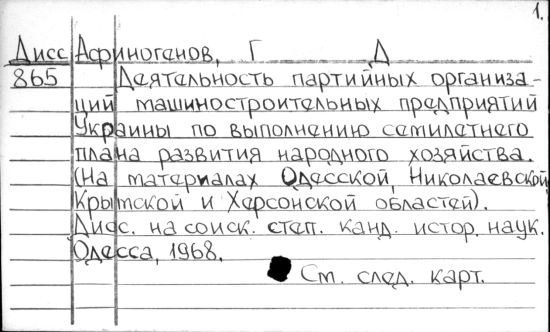 1.
Дисс Афиногенов, Г Д
865 Деятельность партийных организа-
ций машиностроительных предприятий
Украины по выполнению семилетнего
плана развития народного хозяйства.
(На материалах Одесской, Николаевской
Крымской и Херсонской областей).
Дисс. на соиск. степ. канд. истор. наук.
Одесса, 1968.
См. след. карт.